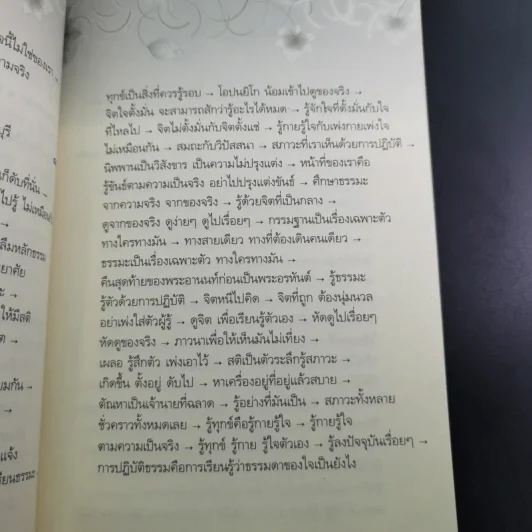 จนี้ไม่ใช่ของเรา →
ามจริง
บุรี
ก็ดับที่นั่น →
ไปรู้ ไม่เหมือนกั
→
ลืมหลักธรรม
ยาศัย
ะ →
ให้มีสติ
ต →
ยมกัน →
→
แจ้ง
รียนธรรมะ
ทุกข์เป็นสิ่งที่ควรรู้รอบ → โอปนยิโก น้อมเข้าไปดูของจริง →
จิตใจตั้งมั่น จะสามารถสักว่ารู้อะไรได้หมด → รู้จักใจที่ตั้งมั่นกับใจ
ที่ไหลไป → จิตไม่ตั้งมั่นกับจิตตั้งแช่ → รู้กายรู้ใจกับเพ่งกายเพ่งใจ
ไม่เหมือนกัน → สมถะกับวิปัสสนา → สภาวะที่เราเห็นด้วยการปฏิบัติ →
นิพพานเป็นวิสังขาร เป็นความไม่ปรุงแต่ง → หน้าที่ของเราคือ
รู้ขันธ์ตามความเป็นจริง อย่าไปปรุงแต่งขันธ์ → ศึกษาธรรมะ
จากความจริง จากของจริง → รู้ด้วยจิตที่เป็นกลาง →
ดูจากของจริง ดูง่ายๆ ดูไปเรื่อยๆ → กรรมฐานเป็นเรื่องเฉพาะตัว
ทางใครทางมัน → ทางสายเดียว ทางที่ต้องเดินคนเดียว →
ธรรมะเป็นเรื่องเฉพาะตัว ทางใครทางมัน →
คืนสุดท้ายของพระอานนท์ก่อนเป็นพระอรหันต์ → รู้ธรรมะ
รู้ตัวด้วยการปฏิบัติ → จิตหนีไปคิด → จิตที่ถูก ต้องนุ่มนวล
อย่าเพ่งใส่ตัวผู้รู้ → ดูจิต เพื่อเรียนรู้ตัวเอง → หัดดูไปเรื่อยๆ
หัดดูของจริง → ภาวนาเพื่อให้เห็นมันไม่เที่ยง →
เผลอ รู้สึกตัว เพ่งเอาไว้ → สติเป็นตัวระลึกรู้สภาวะ →
เกิดขึ้น ตั้งอยู่ ดับไป → หาเครื่องอยู่ที่อยู่แล้วสบาย →
ตัณหาเป็นเจ้านายที่ฉลาด → รู้อย่างที่มันเป็น → สภาวะทั้งหลาย
ชั่วคราวทั้งหมดเลย → รู้ทุกข์คือรู้กายรู้ใจ → รู้กายรู้ใจ
ตามความเป็นจริง → รู้ทุกข์ รู้กาย รู้ใจตัวเอง → รู้ลงปัจจุบันเรื่อยๆ →
การปฏิบัติธรรมคือการเรียนรู้ว่าธรรมดาของใจเป็นยังไง